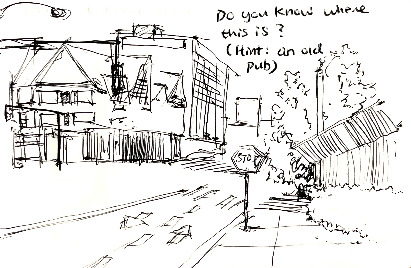 Do you know where
this is?
(Hint: an old
pub)
STO